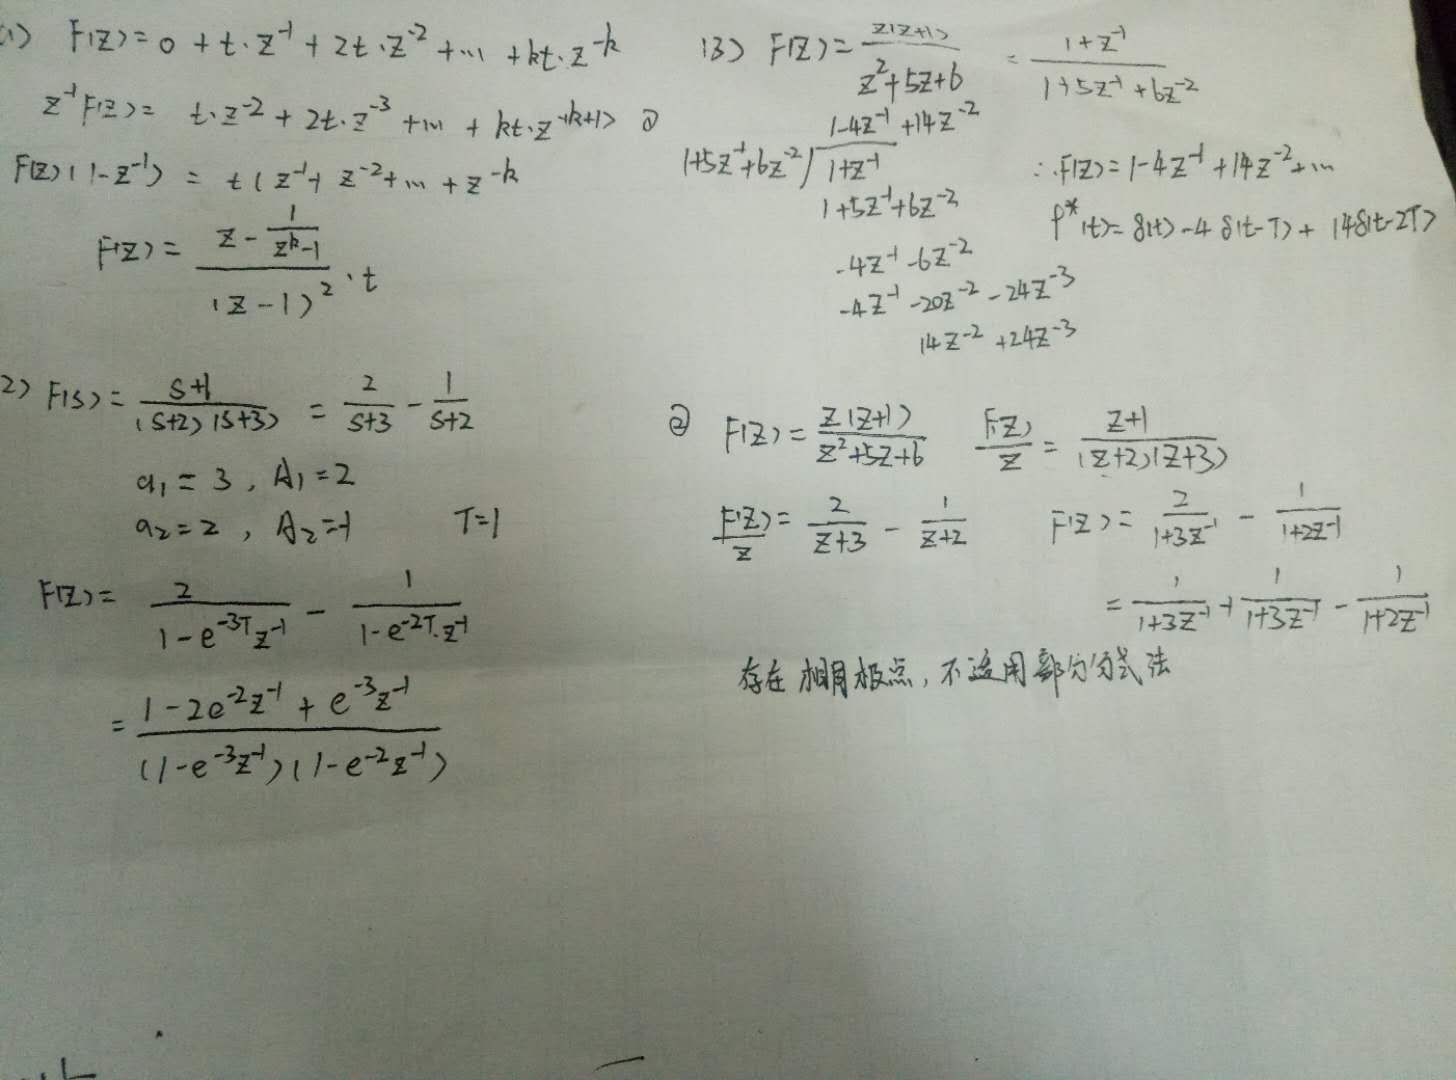 (1) F(z)=0+t·z⁻¹+2t·z⁻²+…+kt·z⁻ᵏ
z⁻¹F(z)= t·z⁻²+2t·z⁻³+…+kt·z⁻⁽ᵏ⁺¹⁾ ②
F(z)(1-z⁻¹) = t(z⁻¹+z⁻²+…+z⁻ᵏ
F(z)= (z - 1/(zᵏ-1))/(z-1)² · t
2) F(s)= (s+1)/((s+2)(s+3)) = 2/(s+3) - 1/(s+2)
a₁=3, A₁=2
a₂=2, A₂=-1 T=1
F(z)= 2/(1-e⁻³ᵀz⁻¹) - 1/(1-e⁻²ᵀ·z⁻¹)
= (1-2e⁻²z⁻¹+e⁻³z⁻¹)/((1-e⁻³z⁻¹)(1-e⁻²z⁻¹))
(3) F(z)= z(z+1)/(z²+5z+6) = (1+z⁻¹)/(1+5z⁻¹+6z⁻²)
1-4z⁻¹+14z⁻²
1+5z⁻¹+6z⁻² ) 1+z⁻¹
1+5z⁻¹+6z⁻²
-4z⁻¹-6z⁻²
-4z⁻¹-20z⁻²-24z⁻³
14z⁻²+24z⁻³
∴F(z)=1-4z⁻¹+14z⁻²+…
f*(t)=δ(t)-4δ(t-T)+14δ(t-2T)
② F(z)= z(z+1)/(z²+5z+6) F(z)/z = (z+1)/((z+2)(z+3))
F(z)/z = 2/(z+3) - 1/(z+2) F(z)= 2/(1+3z⁻¹) - 1/(1+2z⁻¹)
= 1/(1+3z⁻¹) + 1/(1+3z⁻¹) - 1/(1+2z⁻¹)
存在相同极点，不适用部分分式法